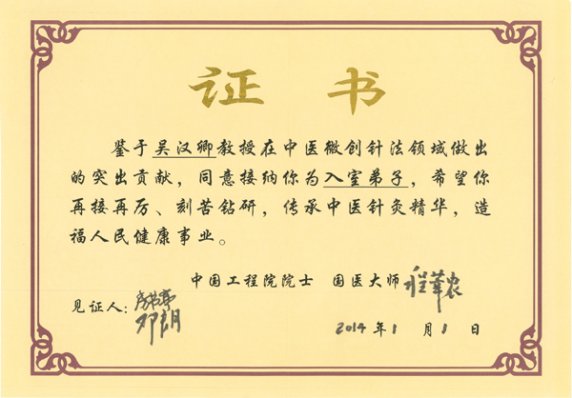 证书
鉴于吴汉卿教授在中医微创针法领域做出
的突出贡献，同意接纳你为入室弟子，希望你
再接再厉、刻苦钻研，传承中医针灸精华，造
福人民健康事业。
中国工程院院士 国医大师 程莘农
见证人：
2014 年 1 月 1 日